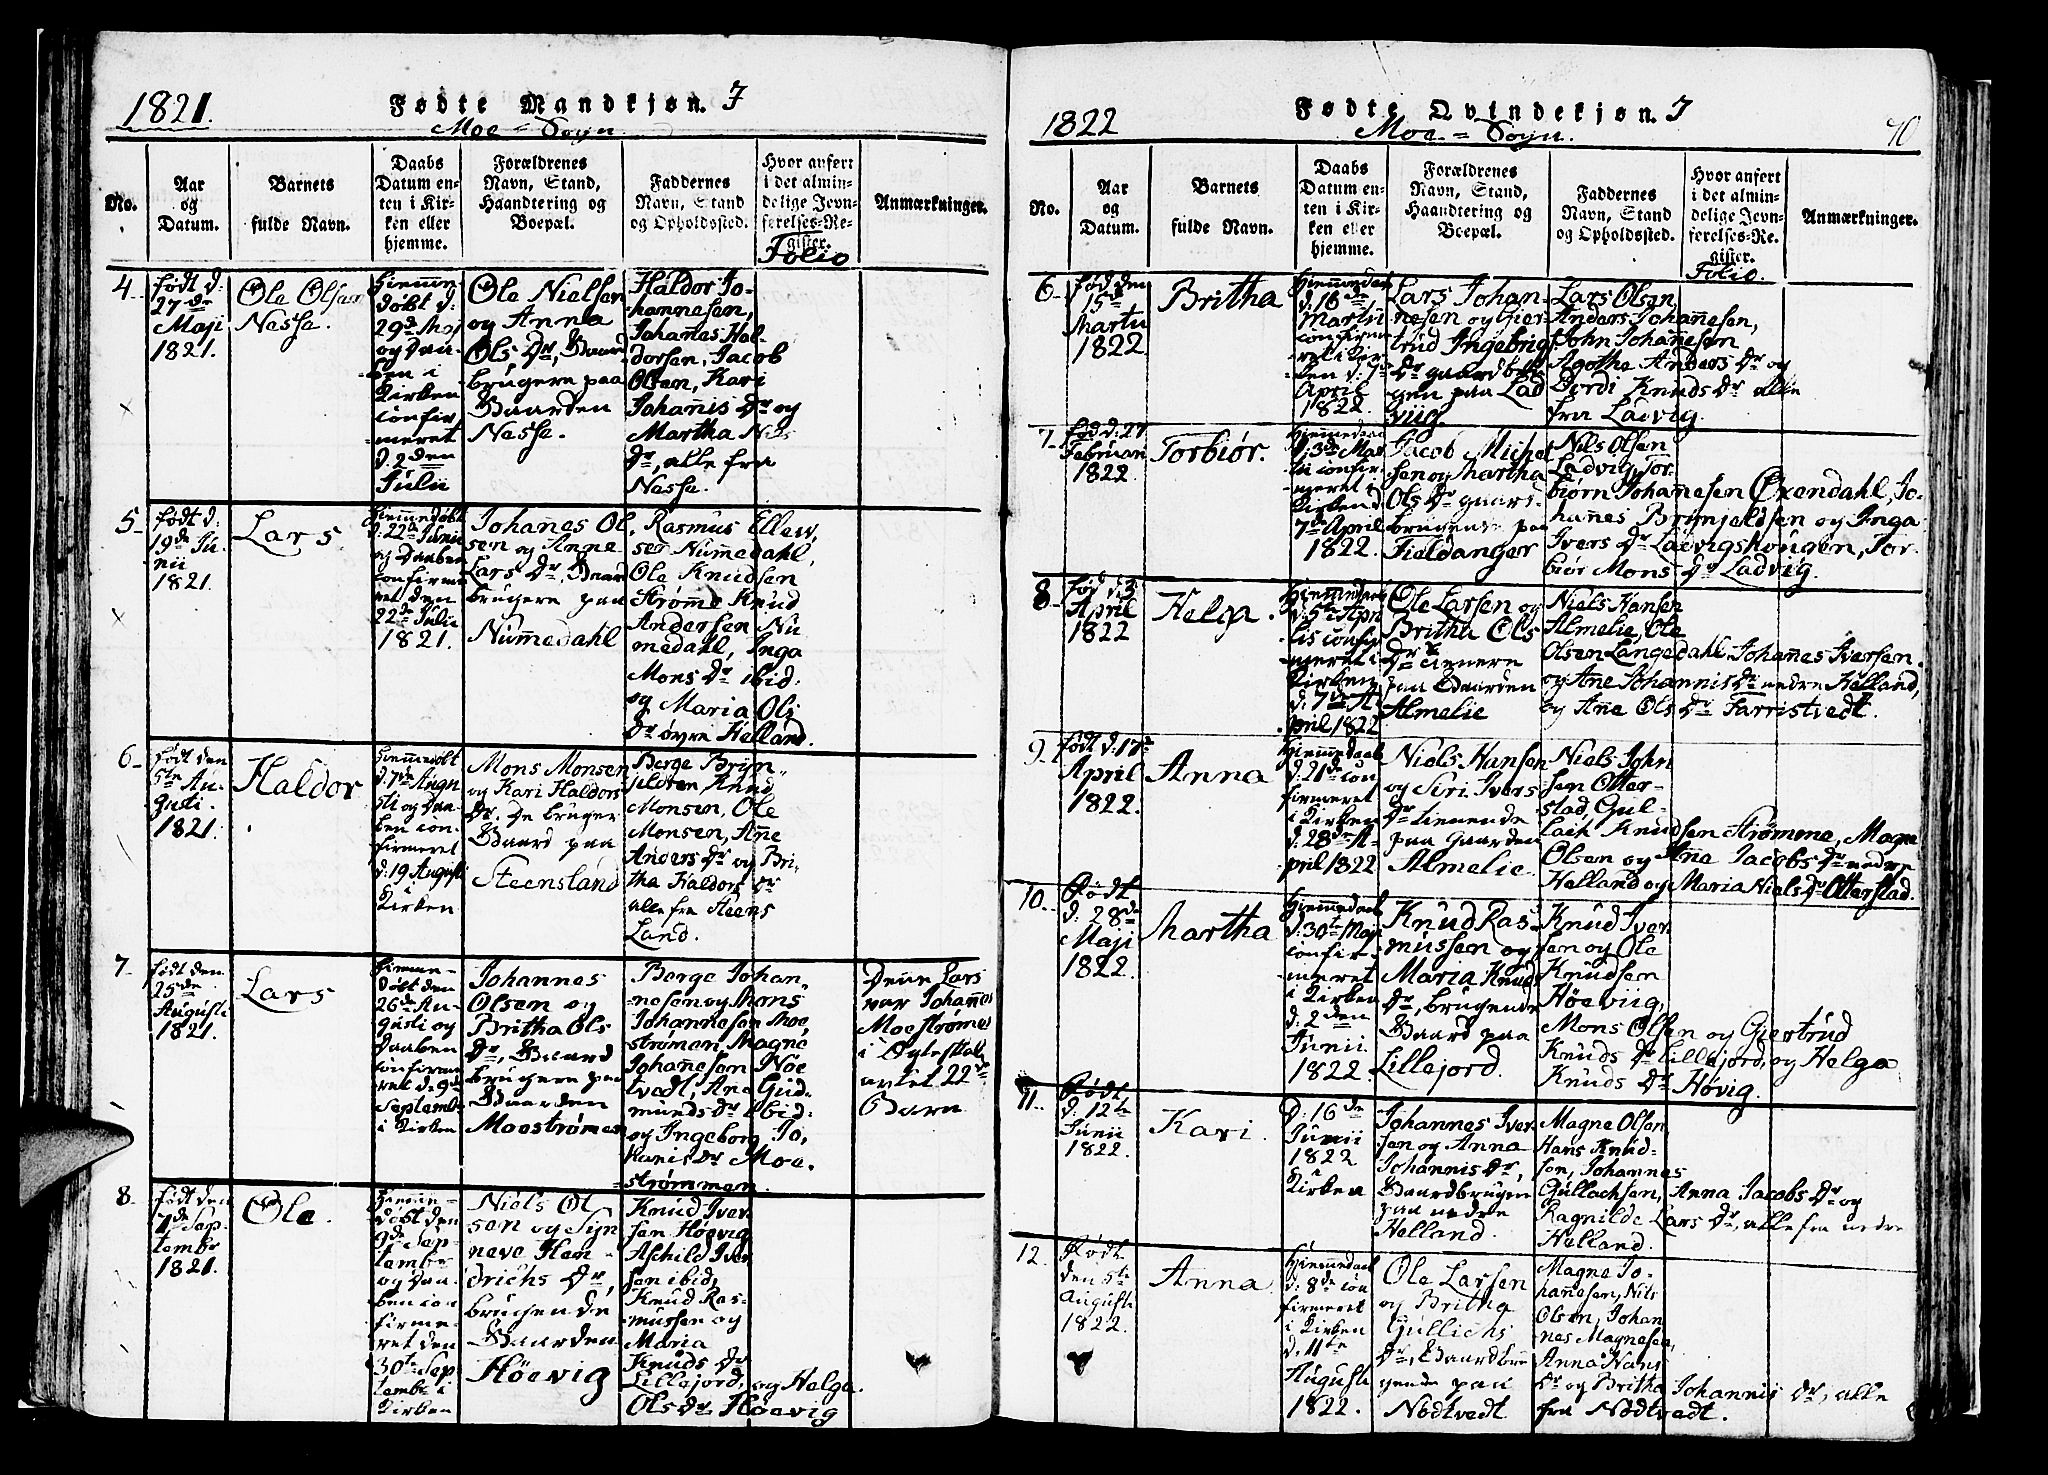 1821.
Fødte Mandkjøn. J
Moe = Sogn
No.
Aar
og
Datum.
Barnets
fulde Navn.
Daabs
Datum en-
ten i Kir-
ken eller
hjemme.
Forældrenes
Navn, Stand,
Haandtering og
Boepæl.
Faddernes
Navn, Stand
og Opholdssted.
Hvor anført
i det almin-
delige Jevn-
førelses-Re-
gister.
Folio
Anmærkninger.
4
født d:
27de
Maji
1821.
Ole Olsen
Nesse.
Hiemme
døbt d:
29de Maj
og Daa-
ben i
Kirken
confir
meret
d. 2den
Julii
Ole Nielsen
og Anna
Ols Dr, Gaard
brugere paa
Gaarden
Nesse.
Haldor Jo-
hannesen,
Johanes Hal-
dorsen, Jacob
Olsen, Kari
Johannis Dr og
Martha Nils
Dr, alle fra
Nesse.
5
født d:
19de Ju-
nii
1821.
Lars
Hiemmedøbt
d: 22de Junii
og Daaben
confirme
ret den
22de Julii
1821.
Johanes Ol
sen og Anne
Lars Dr, Gaar
brugere paa
Nummedahl
Rasmus Ellew,
sen Numedahl,
Ole Knudsen
Strømme Knud
Andersen Nu
medahl, Inga
Mons Dr ibid.
og Maria Ols
Dr øvre Helland.
6
født den
5te Au-
gusti.
1821.
Haldor
Hiemmedøbt
d: 7de Augu
sti og Daa-
ben con-
firmeret
d: 19 Augusti
i
Kirken
Mons Monsen
og Kari Haldors
Dr. De bruger
Gaard paa
Steensland
Berge Brim-
jeldsen Knud
Monsen, Ole
Monsen, Ane
Anders Dr og Bri-
tha Haldors Dr
alle fra Steens
Land.
7
født den
25de
Augusti
1821.
Lars
hiemme-
døbt den
26de Au-
gusti og
Daaben
confirme
ret d: 9de
Septemb
i Kirken
Johannes
Olsen og
Britha Ols
Dr, Gaard
brugere paa
Gaarden
Moestrømen
Berge Johan-
nesen og Mons
Johannesen Moe,
strømen, Magne
Johanesen Nöe
tvedt, Ane Gud-
munds Dr ibid:
og Ingeborg Jo,
hanis Dr Moe-
strømmen.
Dene Lars
var Johannes
Moestrømes
i Ægteskab
avlet 22de
Barn
8.
født den
1de Sep-
tembr
1821.
Ole
Hiemme-
døbt den
9de Sep-
tembr
og Daa-
ben con-
firme-
ret den
30te Sep
tembr i
Kirken
Niels Ol
sen og Sign
neve Hen-
drichs Dr,
brugende
Gaarden
Höevig
Knud Iver
sen Höevig
Aschild Iver
sen ibid,
Knud Ras-
mussen og
Maria
Knuds Dr
Lillejord, og Helga
Ols Dr Höevig
1822
Fødte Qvindekjøn. J
Moe = Sogn.
70
No.
Aar
og
Datum.
Barnets
fulde Navn.
Daabs
Datum en-
ten i Kir-
ken eller
hjemme.
Forældrenes
Navn, Stand,
Haandtering og
Boepæl.
Faddernes
Navn, Stand
og Opholdssted.
Hvor anført
i det almin-
delige Jevn-
førelses-Re-
gister.
Folio.
Anmærkninger.
6
fød den
15de
Martii
1822
Britha
Hiemmedøbt
d: 16de
Martii
confirme
ret i Kir-
ken d: 7de
April
1822.
Lars Johan-
nesen og Gier-
trud Ingebrigt
Dr gaardbru
gen paa Lad
viig.
Lars Olsen
Anders Johanesen,
John Johanesen
Agotha Anders Dr og
Gordi Knuds Dr alle
fra Ladvig.
7.
fød d: 27
Februari
1822.
Torbiör.
Hiemmedaab
d: 3de Mar
tii confir-
meret i
Kirken d
7de April
1822.
Jacob Michel
sen og Martha
Ols Dr gaard-
brugende paa
Fieldanger
Nils Olsen
Ladvig, Tor-
biørn Johanesen Öxendahl, Jo-
hannes Brynjeldsen og Inga
Ivers Dr Ladvigshougen, Tor-
biør Mons Dr Ladvig.
8
fød d: 3
April
1822
Helga.
Hiemmedaab
d: 5te Apri
lis confir
meret i
Kirken
d: 7de A-
pril 1822
Ole Larsen og
Britha Ols
Dr tienere
paa Gaarden
Almelie
Niels Hansen
Almelie, Ole
Olsen Langedahl, Johannes Iversen
og Ane Johannis Dr nedre Helland,
og Ane Ols Dr Farristvedt.
9.
født d: 17de
April
1822.
Anna
Hiemmedaab
d: 21de con
firmeret
i Kirken
d: 28de A-
pril 1822
Niels Hansen
og Siri Ivers
Dr tienende
paa Gaarden
Almelie.
Niels John
sen Otter-
stad, Gul-
lach Knudsen Strømme, Magne
Olsen og Ane Jacobs Dr nedre
Helland og Maria Niels Dr Otterstad.
10.
Født
d: 28de
Maji
1822.
Martha
Hiemmedaab
d: 30te Maji
confir-
meret
i Kirken
d: 2den
Junii
1822
Knud Ras-
mussen og
Maria Knuds
Dr, brugende
Gaard paa
Lillejord.
Knud Iver
sen og Ole
Knudsen
Höeviig,
Mons Olsen og Giertrud
Knuds Dr Lillejord, og Helga
Knuds Dr Høvig.
11.
Født
d: 12te
Junii
1822.
Kari.
d: 16de
Junii
1822
i
Kirken
Johannes Iver
sen og Anna
Johannis Dr,
Gaardbrugen
paa nedre
Helland.
Magne Olsen
Hans Knud-
sen, Johannes
Gullachsen, Anna Jacobs Dr og
Ragnilde Lars Dr, alle fra nedre
Helland.
12.
Født
den 5te
Augusti
1822.
Anna
Hiemmedaab
d: 8de con
firmeret
i Kirken
d: 11te
Augusti
1822.
Ole Larsen
og Britha
Gullichs
Dr, Gaardbru
gende paa
Nödtvedt
Magne Jo-
hanesen, Nils
Olsen, Johan
nes Magnesen,
Anna Hans
Dr og Britha Johannis Dr, alle
fra Nödtvedt.